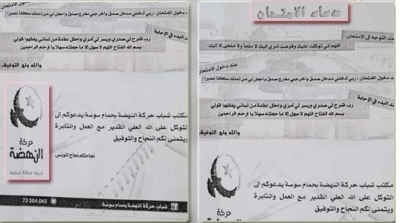 دخول الامتحان : ربي أدخلني مدخل صدق وأخرجني مخرج صدق واجعل لي من لدنك سلطانا نصيرا
البدء في الإجابة
رب اشرح لي صدري ويسر لي أمري واحلل عقدة من لساني يفقهوا قولي
بسم الله الفتاح اللهم لا سهل إلا ما جعلته سهلا يا أرحم الراحمين
والله ولي التوفيق
مكتب شباب حركة النهضة بحمام سوسة يدعوكم إلى
التوكل على الله العلي القدير مع العمل والمثابرة
ويتمنى لكم النجاح والتوفيق
نجاحكم نجاح لتونس
حركة
النهضة
73 364 045
مكتب شباب حركة النهضة بحمام سوسة
دعاء الامتحان
عند التوجه إلى الامتحان
اللهم إني توكلت عليك وفوضت أمري إليك لا ملجأ ولا منجى إلا إليك
عند دخول الامتحان : ربي أدخلني مدخل صدق
عند البدء في الإجابة
رب اشرح لي صدري ويسر لي أمري واحلل عقدة من لساني يفقهوا قولي
بسم الله الفتاح اللهم لا سهل إلا ما جعلته سهلا يا أرحم الراحمين
والله ولي التوفيق
مكتب شباب حركة النهضة بحمام سوسة يدعوكم إلى
التوكل على الله العلي القدير مع العمل والمثابرة
ويتمنى لكم النجاح والتوفيق
حركة
النهضة